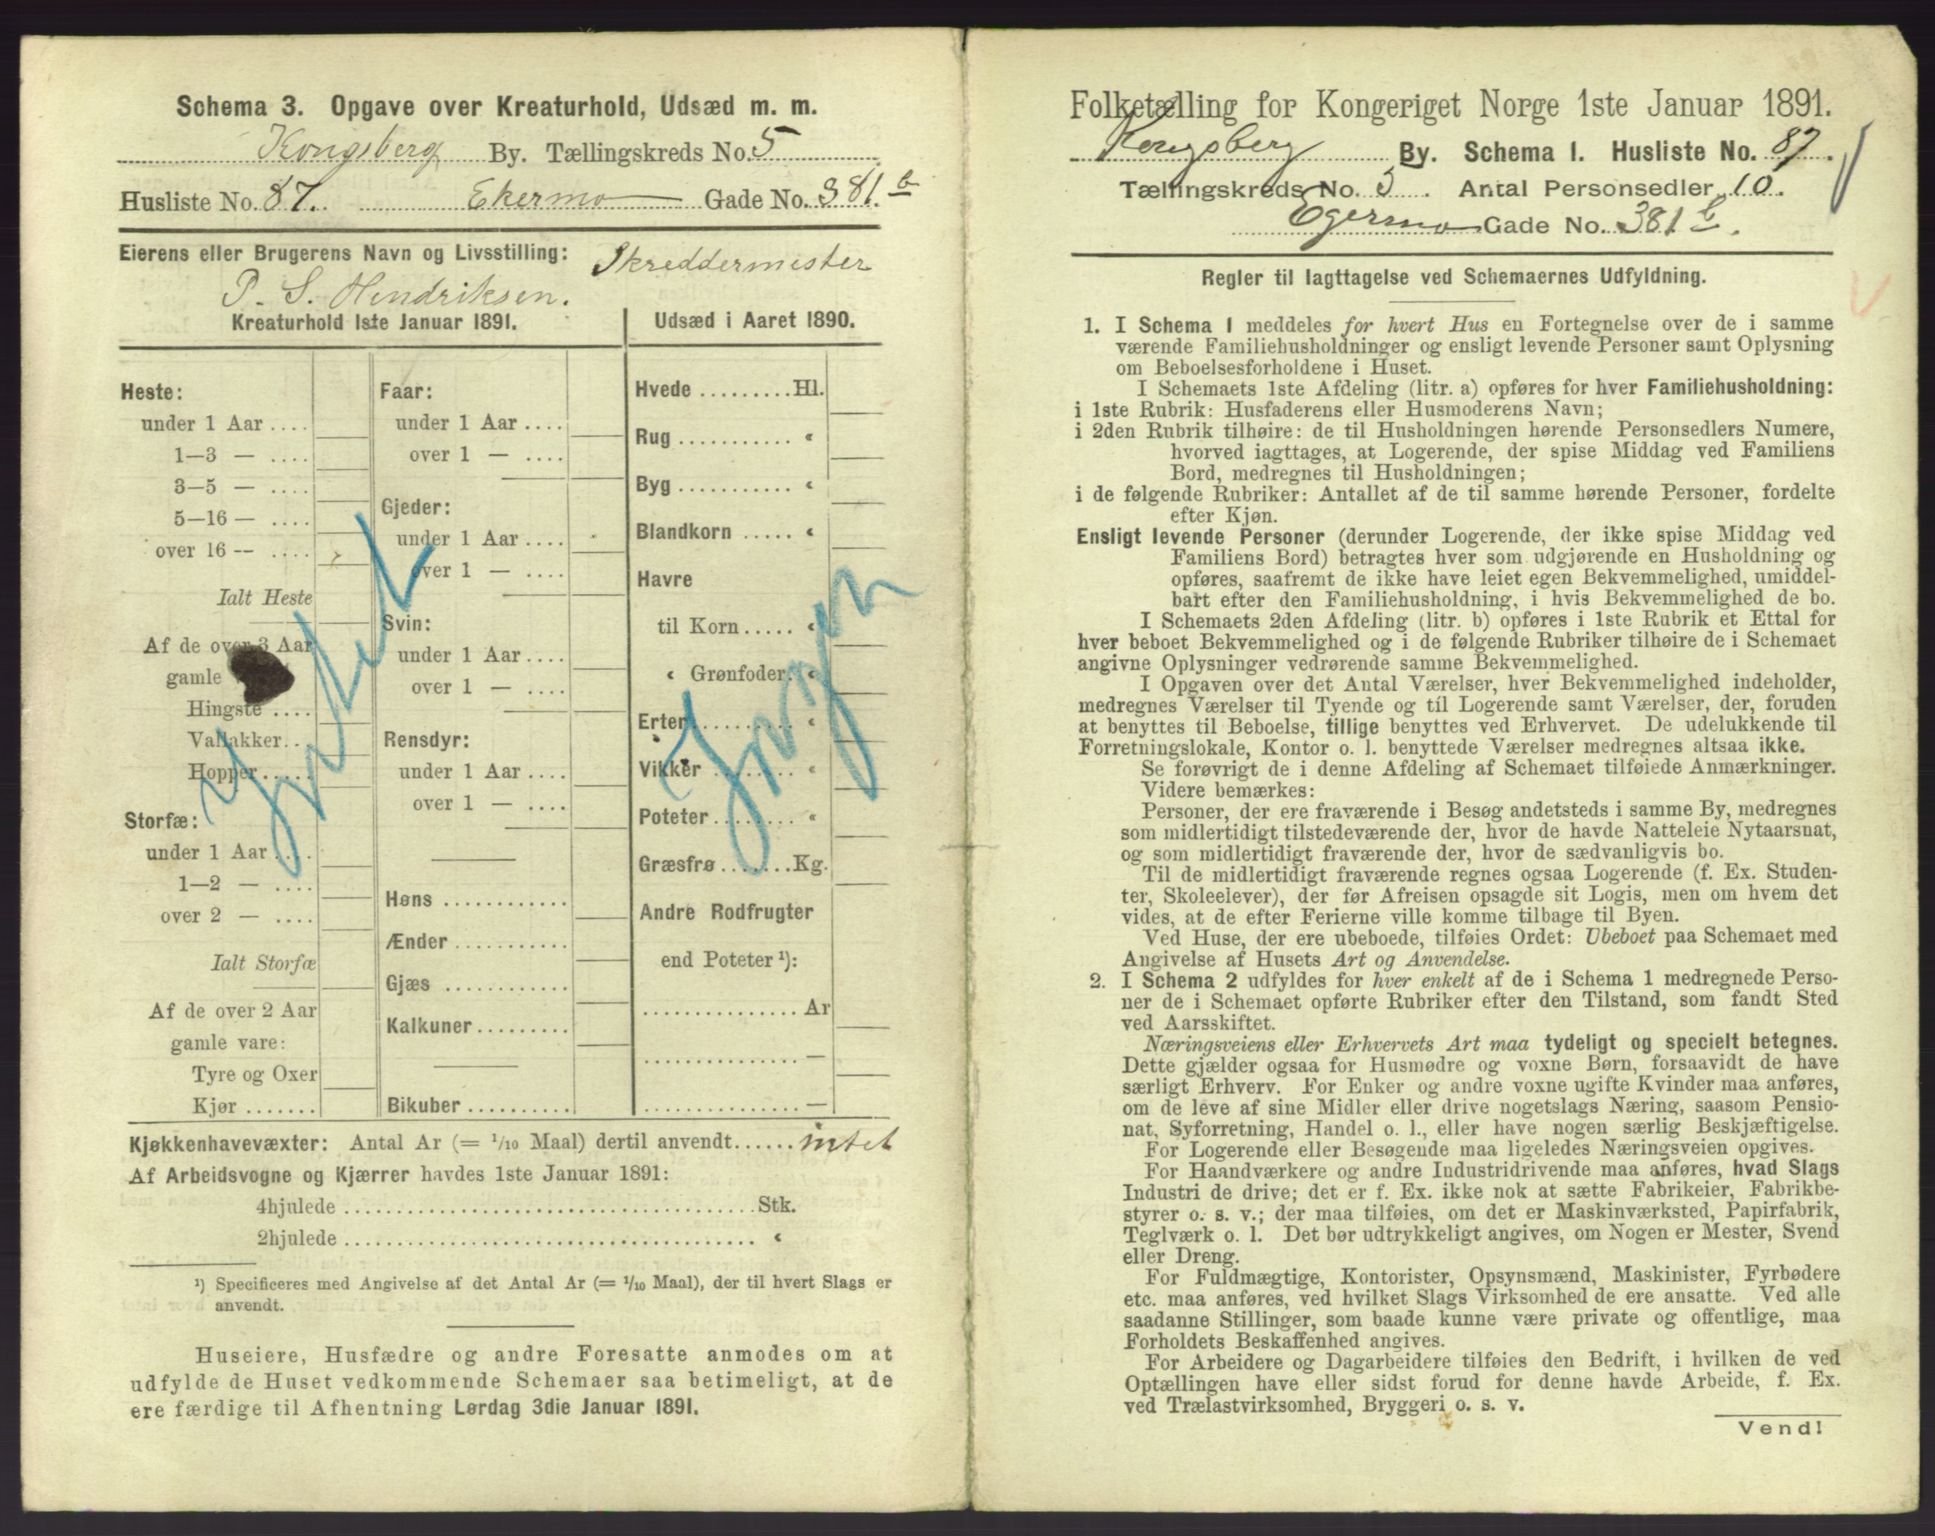 Schema 3. Opgave over Kreaturhold, Udsæd m. m.
Kongsberg By. Tællingskreds No. 5
Husliste No. 87. Ekermo Gade No. 381 b
Eierens eller Brugerens Navn og Livsstilling: Skreddermester
P. S. Hendriksen.
Kreaturhold 1ste Januar 1891.
Heste:
under 1 Aar ....
1—3 — ....
3—5 — ....
5—16 — ....
over 16 — ....
Ialt Heste
Af de over 3 Aar
gamle
Hingste ....
Vallakker...
Hopper.....
Storfæ:
under 1 Aar ....
1—2 — ....
over 2 — ....
Ialt Storfæ
Af de over 2 Aar
gamle vare:
Tyre og Oxer
Kjør .......
Faar:
under 1 Aar ....
over 1 — ....
Gjeder:
under 1 Aar ....
over 1 — ....
Svin:
under 1 Aar ....
over 1 — ....
Rensdyr:
under 1 Aar ....
over 1 — ....
Høns ............
Ænder ...........
Gjæs ............
Kalkuner.........
Bikuber ..........
Udsæd i Aaret 1890.
Hvede .........Hl.
Rug ........... «
Byg ........... «
Blandkorn ..... «
Havre
til Korn..... «
« Grønfoder. «
Erter.......... «
Vikker ........ «
Poteter ........ «
Græsfrø .......Kg.
Andre Rodfrugter
end Poteter ¹):
............... Ar
............... —
............... —
Ingen
Kjøkkenhavevæxter: Antal Ar (= 1/10 Maal) dertil anvendt...... intet
Af Arbeidsvogne og Kjærrer havdes 1ste Januar 1891:
4hjulede ........................................Stk.
2hjulede ........................................ «
¹) Specificeres med Angivelse af det Antal Ar (= 1/10 Maal), der til hvert Slags er
anvendt.
Huseiere, Husfædre og andre Foresatte anmodes om at
udfylde de Huset vedkommende Schemaer saa betimeligt, at de
ere færdige til Afhentning Lørdag 3die Januar 1891.
Folketælling for Kongeriget Norge 1ste Januar 1891.
Kongsberg By. Schema I. Husliste No. 87.
Tællingskreds No. 5. Antal Personsedler 10.
Egermo Gade No. 381 b.
Regler til Iagttagelse ved Schemaernes Udfyldning.
1. I Schema I meddeles for hvert Hus en Fortegnelse over de i samme
værende Familiehusholdninger og ensligt levende Personer samt Oplysning
om Beboelsesforholdene i Huset.
I Schemaets 1ste Afdeling (litr. a) opføres for hver Familiehusholdning:
i 1ste Rubrik: Husfaderens eller Husmoderens Navn;
i 2den Rubrik tilhøire: de til Husholdningen hørende Personsedlers Numere,
hvorved iagttages, at Logerende, der spise Middag ved Familiens
Bord, medregnes til Husholdningen;
i de følgende Rubriker: Antallet af de til samme hørende Personer, fordelte
efter Kjøn.
Ensligt levende Personer (derunder Logerende, der ikke spise Middag ved
Familiens Bord) betragtes hver som udgjørende en Husholdning og
opføres, saafremt de ikke have leiet egen Bekvemmelighed, umiddel-
bart efter den Familiehusholdning, i hvis Bekvemmelighed de bo.
I Schemaets 2den Afdeling (litr. b) opføres i 1ste Rubrik et Ettal for
hver beboet Bekvemmelighed og i de følgende Rubriker tilhøire de i Schemaet
angivne Oplysninger vedrørende samme Bekvemmelighed.
I Opgaven over det Antal Værelser, hver Bekvemmelighed indeholder,
medregnes Værelser til Tyende og til Logerende samt Værelser, der, foruden
at benyttes til Beboelse, tillige benyttes ved Erhvervet. De udelukkende til
Forretningslokale, Kontor o. l. benyttede Værelser medregnes altsaa ikke.
Se forøvrigt de i denne Afdeling af Schemaet tilføiede Anmærkninger.
Videre bemærkes:
Personer, der ere fraværende i Besøg andetsteds i samme By, medregnes
som midlertidigt tilstedeværende der, hvor de havde Natteleie Nytaarsnat,
og som midlertidigt fraværende der, hvor de sædvanligvis bo.
Til de midlertidigt fraværende regnes ogsaa Logerende (f. Ex. Studen-
ter, Skoleelever), der før Afreisen opsagde sit Logis, men om hvem det
vides, at de efter Ferierne ville komme tilbage til Byen.
Ved Huse, der ere ubeboede, tilføies Ordet: Ubeboet paa Schemaet med
Angivelse af Husets Art og Anvendelse.
2. I Schema 2 udfyldes for hver enkelt af de i Schema 1 medregnede Perso-
ner de i Schemaet opførte Rubriker efter den Tilstand, som fandt Sted
ved Aarsskiftet.
Næringsveiens eller Erhvervets Art maa tydeligt og specielt betegnes.
Dette gjælder ogsaa for Husmødre og voxne Børn, forsaavidt de have
særligt Erhverv. For Enker og andre voxne ugifte Kvinder maa anføres,
om de leve af sine Midler eller drive nogetslags Næring, saasom Pensio-
nat, Syforretning, Handel o. l., eller have nogen særlig Beskjæftigelse.
For Logerende eller Besøgende maa ligeledes Næringsveien opgives.
For Haandværkere og andre Industridrivende maa anføres, hvad Slags
Industri de drive; det er f. Ex. ikke nok at sætte Fabrikeier, Fabrikbe-
styrer o. s. v.; der maa tilføies, om det er Maskinværksted, Papirfabrik,
Teglværk o. l. Det bør udtrykkeligt angives, om Nogen er Mester, Svend
eller Dreng.
For Fuldmægtige, Kontorister, Opsynsmænd, Maskinister, Fyrbødere
etc. maa anføres, ved hvilket Slags Virksomhed de ere ansatte. Ved alle
saadanne Stillinger, som baade kunne være private og offentlige, maa
Forholdets Beskaffenhed angives.
For Arbeidere og Dagarbeidere tilføies den Bedrift, i hvilken de ved
Optællingen have eller sidst forud for denne havde Arbeide, f. Ex.
ved Trælastvirksomhed, Bryggeri o. s. v.
Vend!